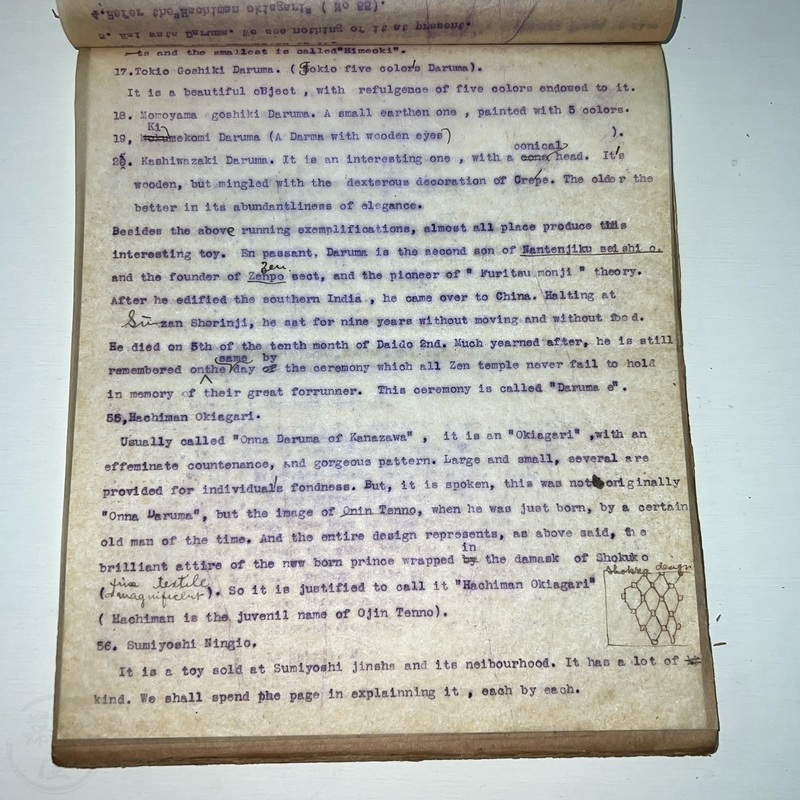 4. Refer the "Hachiman Okiagari" ( No 55).
ts and the smallest is called "Himeoki".
17. Tokio Goshiki Daruma. (Tokio five colors Daruma).
It is a beautiful oBject , with refulgence of five colors endowed to it.
18. Momoyama goshiki Daruma. A small earthen one , painted with 5 colors.
19, Kimekomi Daruma (A Darma with wooden eyes) ).
20. Kashiwazaki Daruma. It is an interesting one , with a conical head. It's
wooden, but mingled with the dexterous decoration of Crepe. The older the
better in its abundantliness of elegance.
Besides the above running exemplifications, almost all place produce this
interesting toy. En passant, Daruma is the second son of Nantenjiku sei shi o.
and the founder of Zen sect, and the pioneer of " Furitsu monji " theory.
After he edified the southern India , he came over to China. Halting at
Sūzan Shorinji, he sat for nine years without moving and without food.
He died on 5th of the tenth month of Daido 2nd. Much yearned after, he is still
remembered on the same day by the ceremony which all Zen temple never fail to hold
in memory of their great forrunner. This ceremony is called "Daruma e".
55, Hachiman Okiagari.
Usually called "Onna Daruma of Kanazawa" , it is an "Okiagari" ,with an
effeminate countenance, and gorgeous pattern. Large and small, several are
provided for individual's fondness. But, it is spoken, this was not originally
"Onna Daruma", but the image of Onin Tenno, when he was just born, by a certain
old man of the time. And the entire design represents, as above said, the
brilliant attire of the new born prince wrapped in the damask of Shokuko
(fine textile magnificent). So it is justified to call it "Hachiman Okiagari"
Shokko design
( Hachiman is the juvenil name of Ojin Tenno).
56. Sumiyoshi Ningio.
It is a toy sold at Sumiyoshi jinsha and its neibourhood. It has a lot of
kind. We shall spend the page in explainning it , each by each.